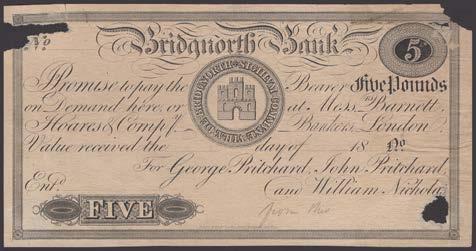 Bridgnorth Bank
5
I Promise to pay the Bearer Five Pounds
on Demand here, or at Mess.rs Barnett
Hoares & Comp.y Bankers London
Value received the day of 18 No
For George Pritchard, John Pritchard,
Ent.d and William Nichola
FIVE